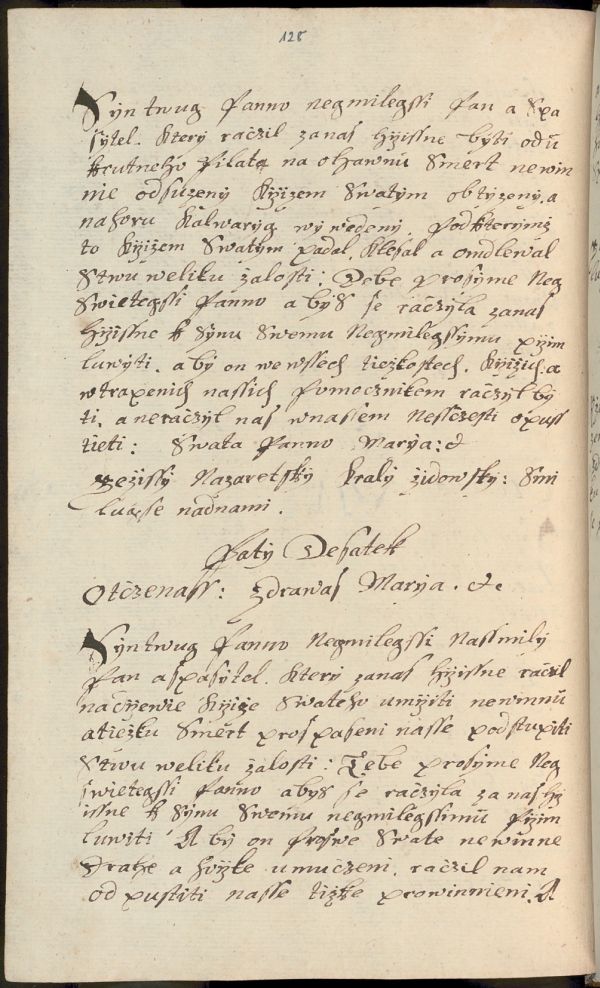 128
Syn twug Panno negmilegssi Pan a Spa
sytel. Který raczil zanas hržissne býti od u
krutneho Pilata na ohawnu Smert newin
nie odsuzený Kržižem Swatým obtýzený. a
nahoru Kalwaryg wýwedený. Podkterýmž
to Kržižem Swatým padal, klesal a omdlewal
Stwu weliku žalosti: Tebe prosýme Neg
Swietegssi Panno abýs se raczyla zanas
hržissne k Sýnu Swemu Negmilegssýmu pržim
luwýti. abý on wewssech tiežkostech. Kržižich. a
wtrapenich nassich Pomocznikem raczýl bý
ti. a neraczýl nas wnassem Nesstiesti opus
tieti: Swata Panno Marýa: &
Gežissý Nazaretský Kralý židowský: Smi
lug se nadnami.
Patý Desatek
Otczenass: Zdrawas Marýa. &c.
Syn twug Panno Negmilegssi Nassmilý
Pan aspasýtel. Který zanas hržissne raczil
nadržewie Kržiže Swateho umržiti newinnú
atiežku Smért prospaseni nasse podstupiti
Stwu weliku žalosti: Tebe prosýme Neg
swietegssi Panno abýs se raczýla zanas hrž
issne k Sýnu Swemu negmilegssimú Pržim
luwiti A bý on proswe Swate newinne
Drahe a horžke umuczeni. raczil nam
odpustiti nasse tižke prowinnieni. A